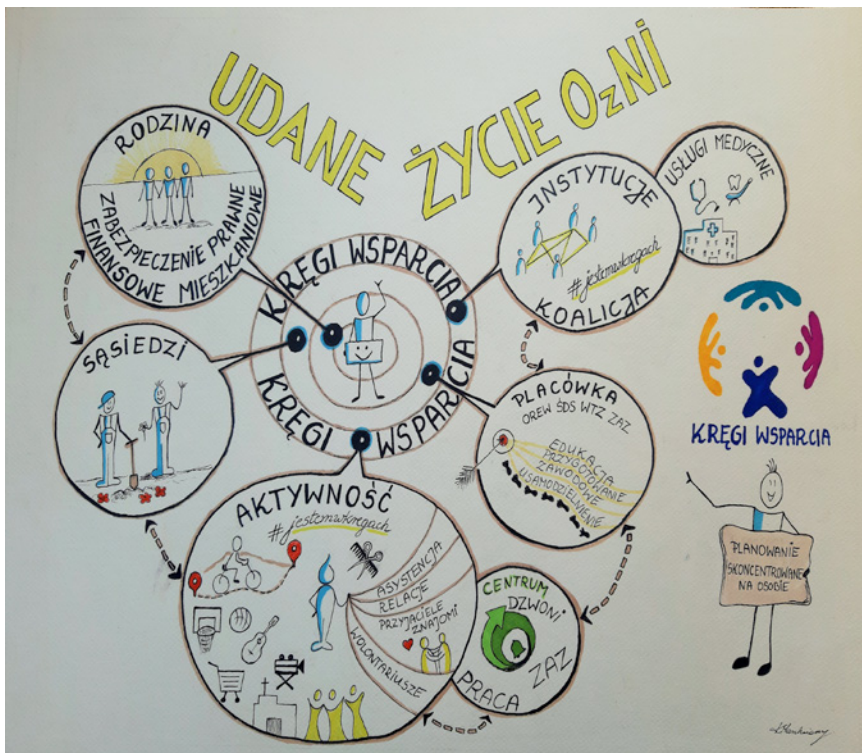 UDANE ŻYCIE OzNI
RODZINA
ZABEZPIECZENIE PRAWNE
FINANSOWE MIESZKANIOWE
SĄSIEDZI
KRĘGI WSPARCIA
KRĘGI WSPARCIA
INSTYTUCJE
#jestemwkręgach
KOALICJA
USŁUGI MEDYCZNE
PLACÓWKA
OREW ŚDS WTZ ZAZ
EDUKACJA
PRZYGOTOWANIE
ZAWODOWE
USAMODZIELNIENIE
AKTYWNOŚĆ
#jestemwkręgach
ASYSTENCJA
RELACJE
PRZYJACIELE
ZNAJOMI
WOLONTARIUSZE
CENTRUM
DZWONI
PRACA ZAZ
KRĘGI WSPARCIA
PLANOWANIE
SKONCENTROWANE
NA OSOBIE